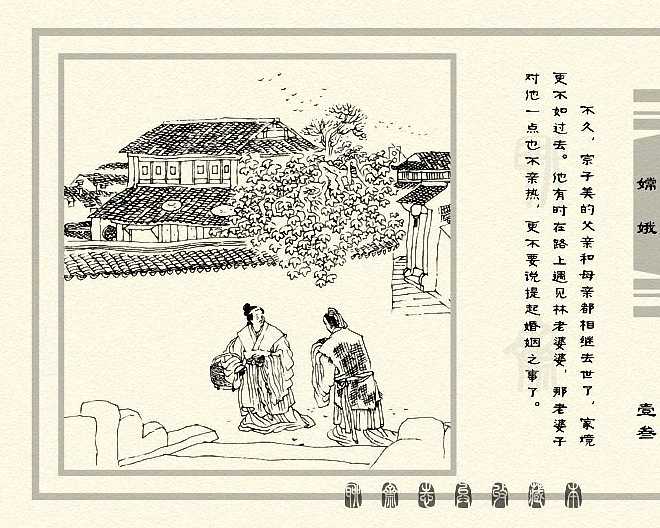 不久，宗子美的父亲和母亲都相继去世了，家境
更不如过去。他有时在路上遇见林老婆婆，那老婆子
对他一点也不亲热，更不要说提起婚姻之事了。
嫦娥
壹叁
聊斋志异收藏本